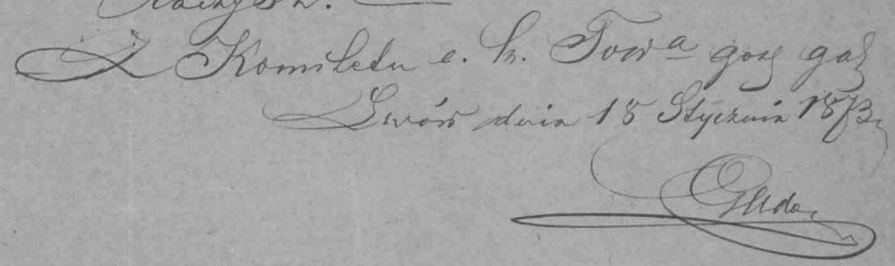 Z Komitetu c. k. Towa gosp gal
Lwów dnia 18 Stycznia 1873